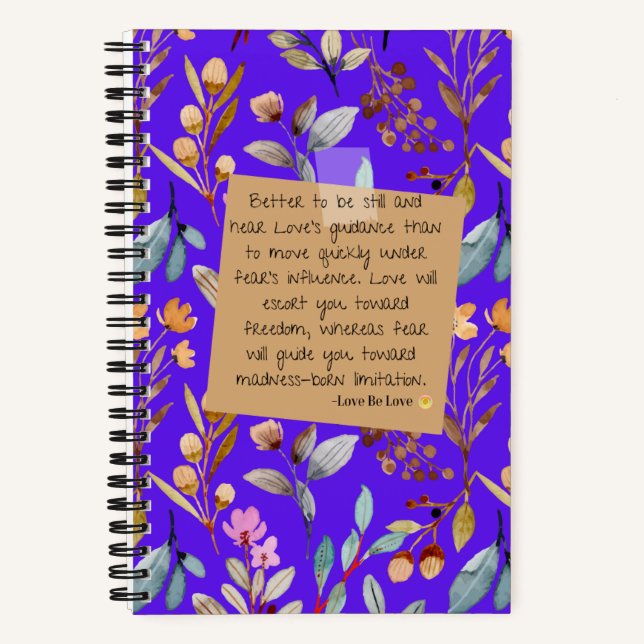 Better to be still and
hear Love's guidance than
to move quickly under
fear's influence. Love will
escort you toward
freedom, whereas fear
will guide you toward
madness-born limitation.
-Love Be Love